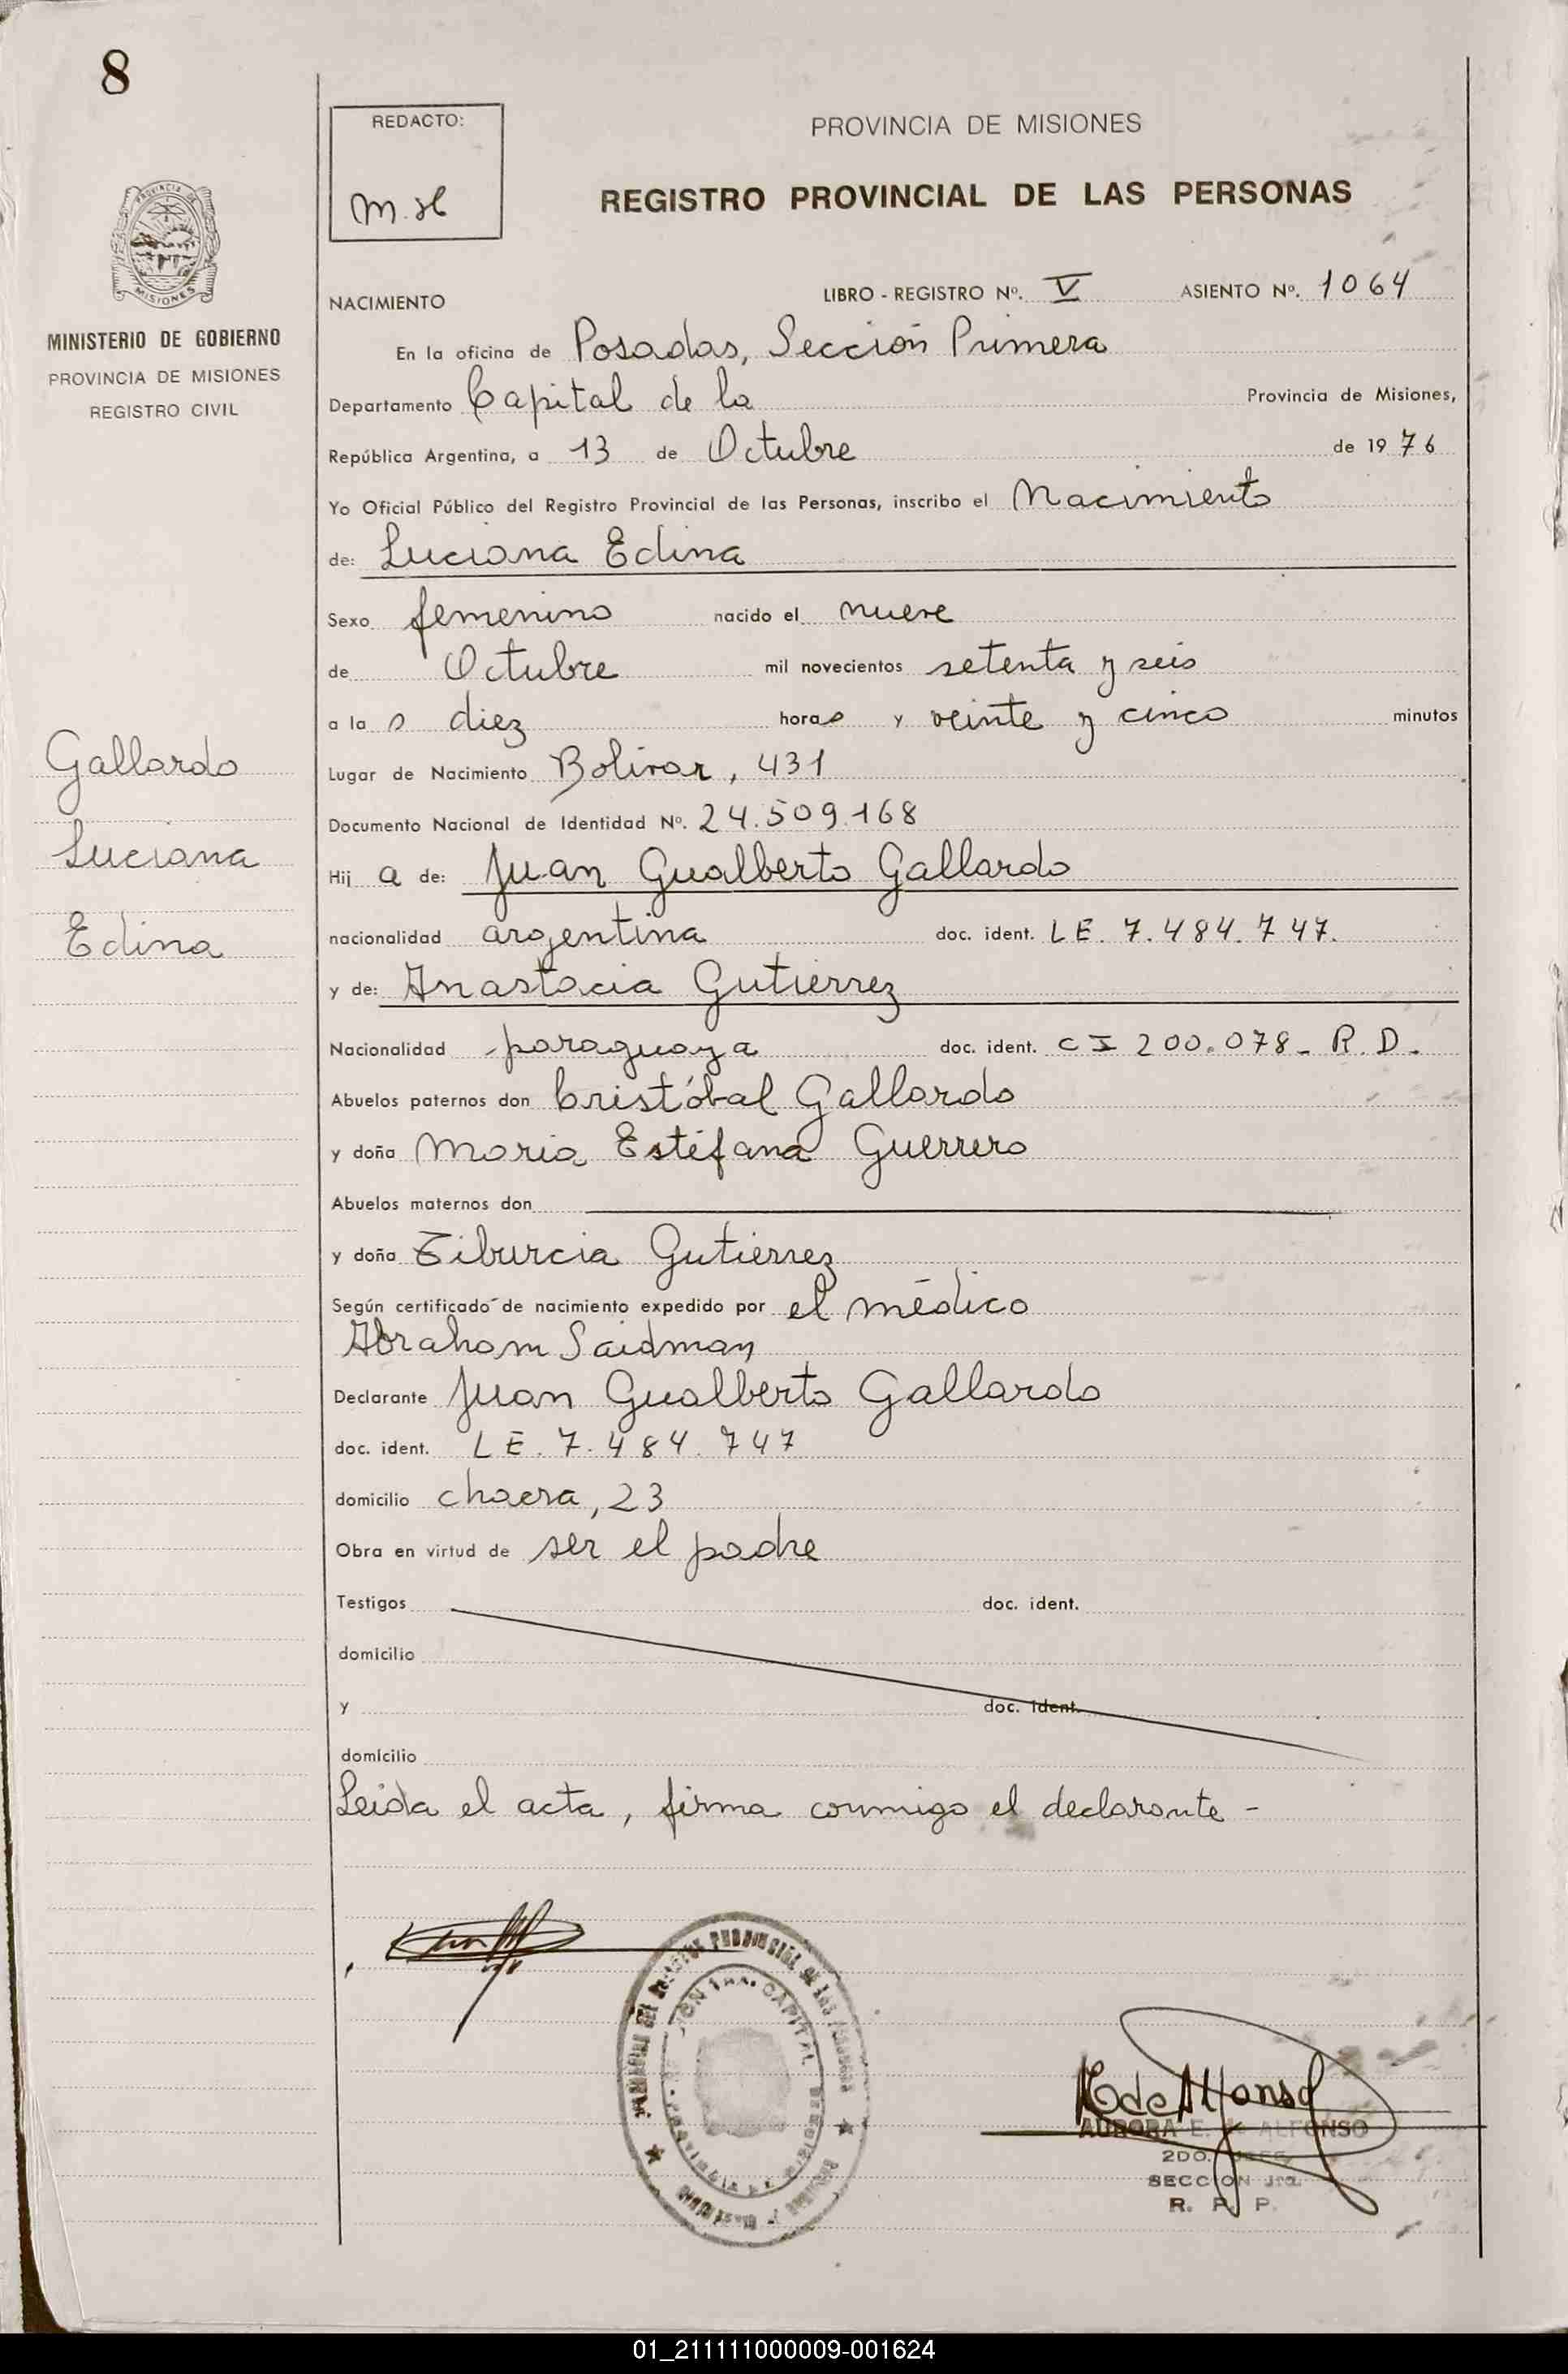 8
REDACTO:
PROVINCIA DE MISIONES
REGISTRO PROVINCIAL DE LAS PERSONAS
PROVINCIA DE
MISIONES
MINISTERIO DE GOBIERNO
PROVINCIA DE MISIONES
REGISTRO CIVIL
NACIMIENTO LIBRO - REGISTRO Nº. V ASIENTO Nº. 1064
En la oficina de Posadas, Sección Primera
Departamento Capital de la Provincia de Misiones,
República Argentina, a 13 de Octubre de 1976
Yo Oficial Público del Registro Provincial de las Personas, inscribo el Nacimiento
de: Luciana Edina
Sexo femenino nacido el nueve
de Octubre mil novecientos setenta y seis
a la s diez horas y veinte y cinco minutos
Gallardo
Luciana
Edina
Lugar de Nacimiento Bolivar, 431
Documento Nacional de Identidad Nº. 24.509.168
Hij a de: Juan Gualberto Gallardo
nacionalidad argentina doc. ident. LE. 7.484.747.
y de: Anastacia Gutierrez
Nacionalidad paraguaya doc. ident. CI 200.078- R.D.
Abuelos paternos don Cristóbal Gallardo
y doña Maria Estéfana Guerrero
Abuelos maternos don
y doña Tiburcia Gutierrez
Según certificado de nacimiento expedido por el médico
Abraham Saidman
Declarante Juan Gualberto Gallardo
doc. ident. LE. 7.484.747
domicilio chacra, 23
Obra en virtud de ser el padre
Testigos doc. ident.
domicilio
y doc. ident.
domicilio
Leida el acta, firma conmigo el declarante -
AURORA E. ALFONSO
2DO. JEFE
SECCION 1ra.
R. P. P.
01_211111000009-001624